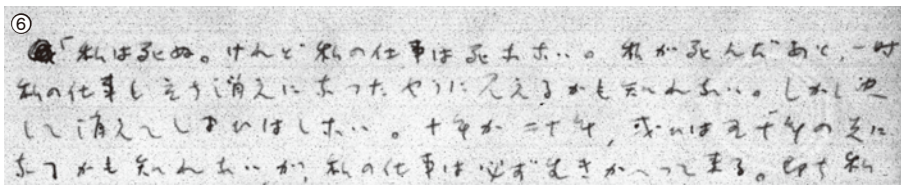 ⑥
「私は死ぬ。けんど私の仕事は死なない。私が死んだあと、一時
私の仕事も立ち消えになつたやうに見えるかも知れない。しかし決
して消えてしまひはしない。十年か二十年、或ひは五十年の先に
なるかも知れないが、私の仕事は必ず生きかへつて来る。即ち私